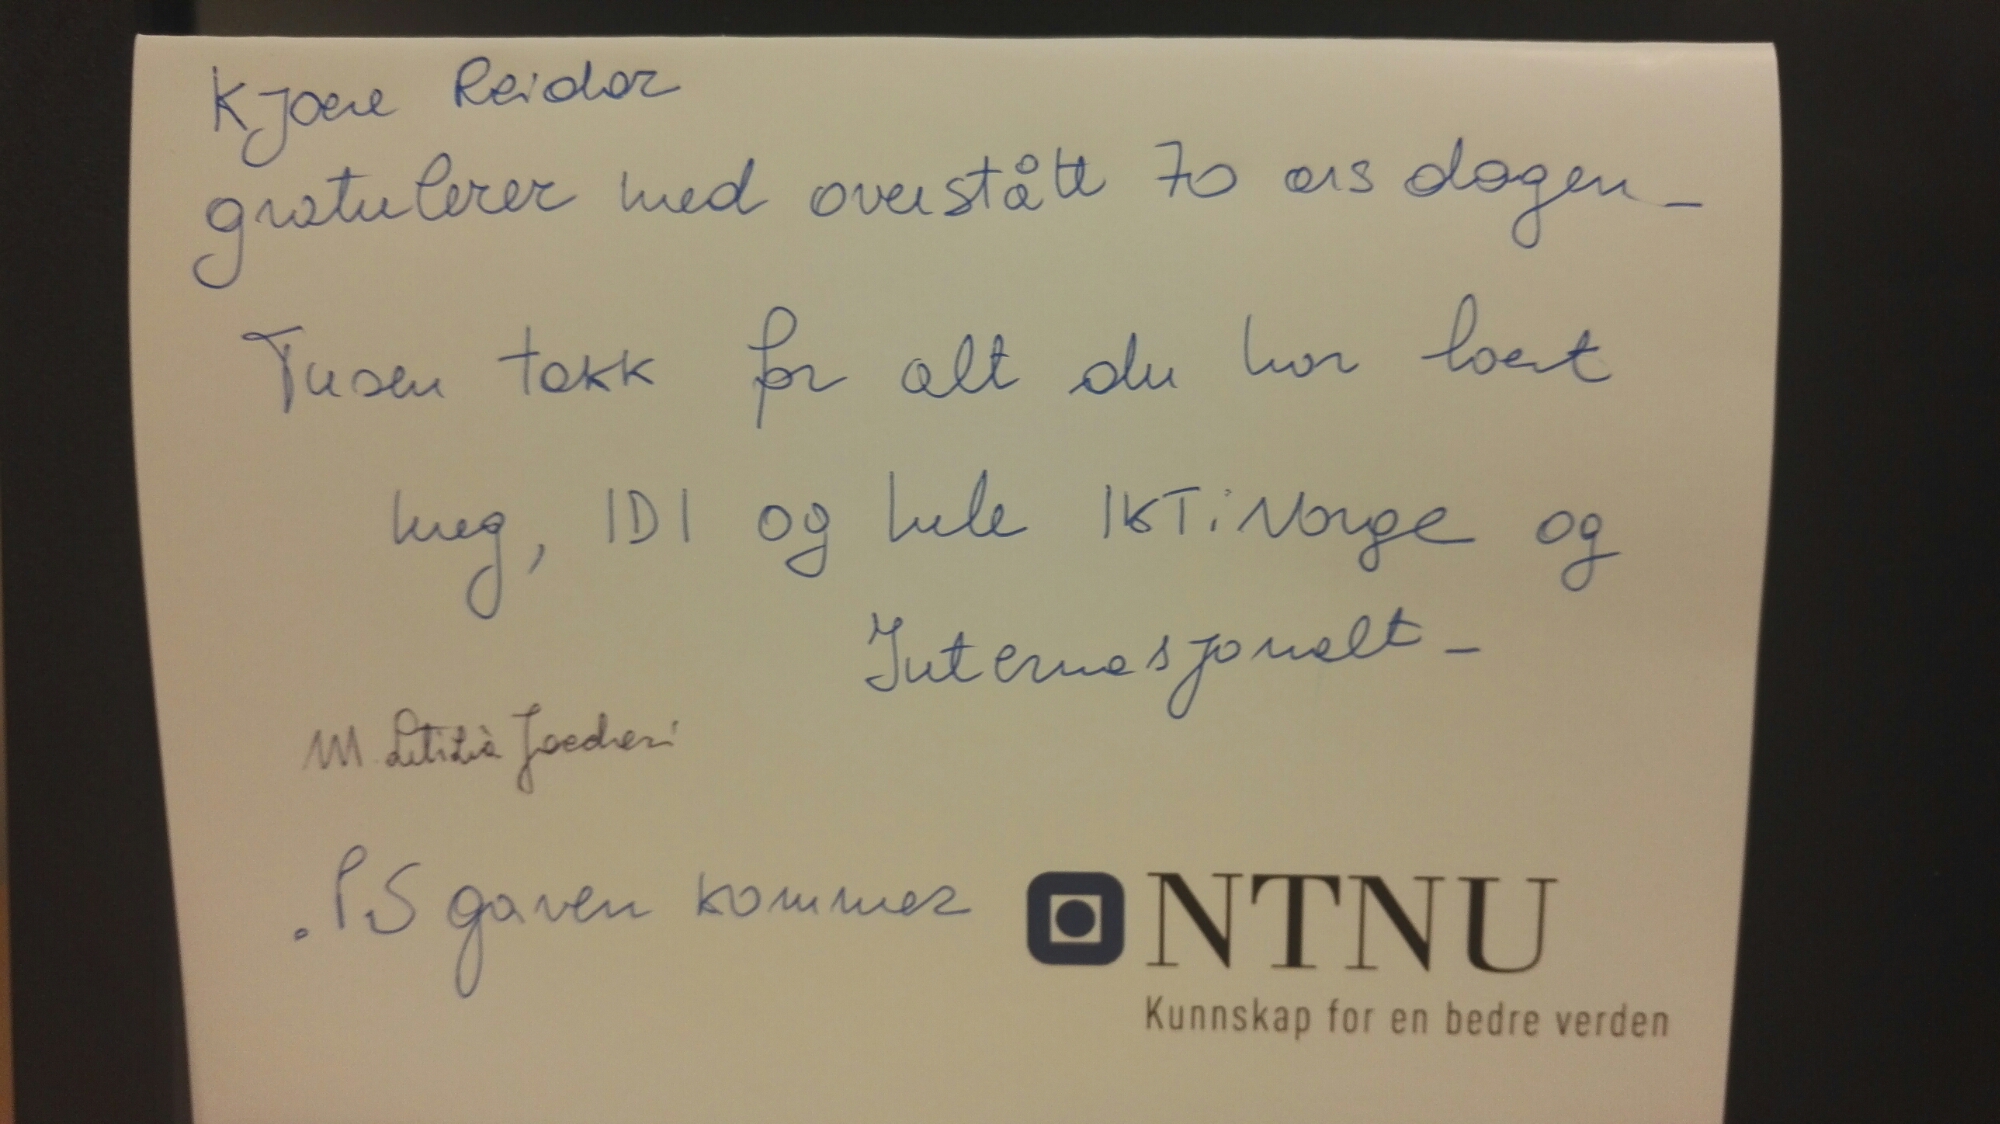 Kjære Reidar
gratulerer med overstått 70 års dagen _
Tusen takk for alt du har lært
meg, IDI og hele IKT i Norge og
Internasjonalt _
M. Letizia Jaccheri
. PS gaven kommer
NTNU
Kunnskap for en bedre verden